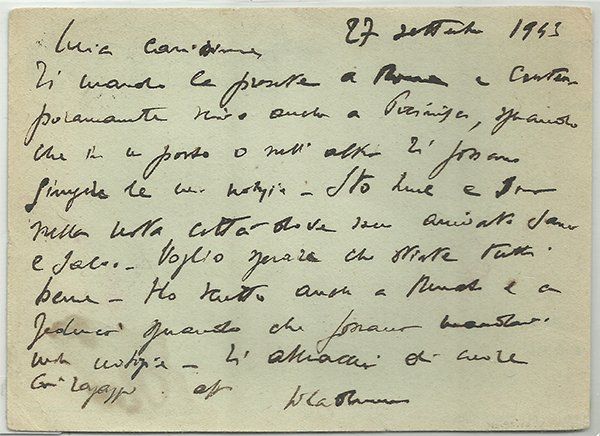 27 settembre 1943
Mia carissima,
Ti mando la presente a Roma e contem
poraneamente scrivo anche a, sperando
che in un posto o nell'altro Ti possano
giungere le mie notizie - Sto bene e sono
nella nota città dove sono arrivato sano
e salvo - Voglio sperare che stiate tutti
bene - Ho scritto anche a e a
sperando che possano mandarvi
notizie - Ti abbraccio di cuore
coi ragazzi aff